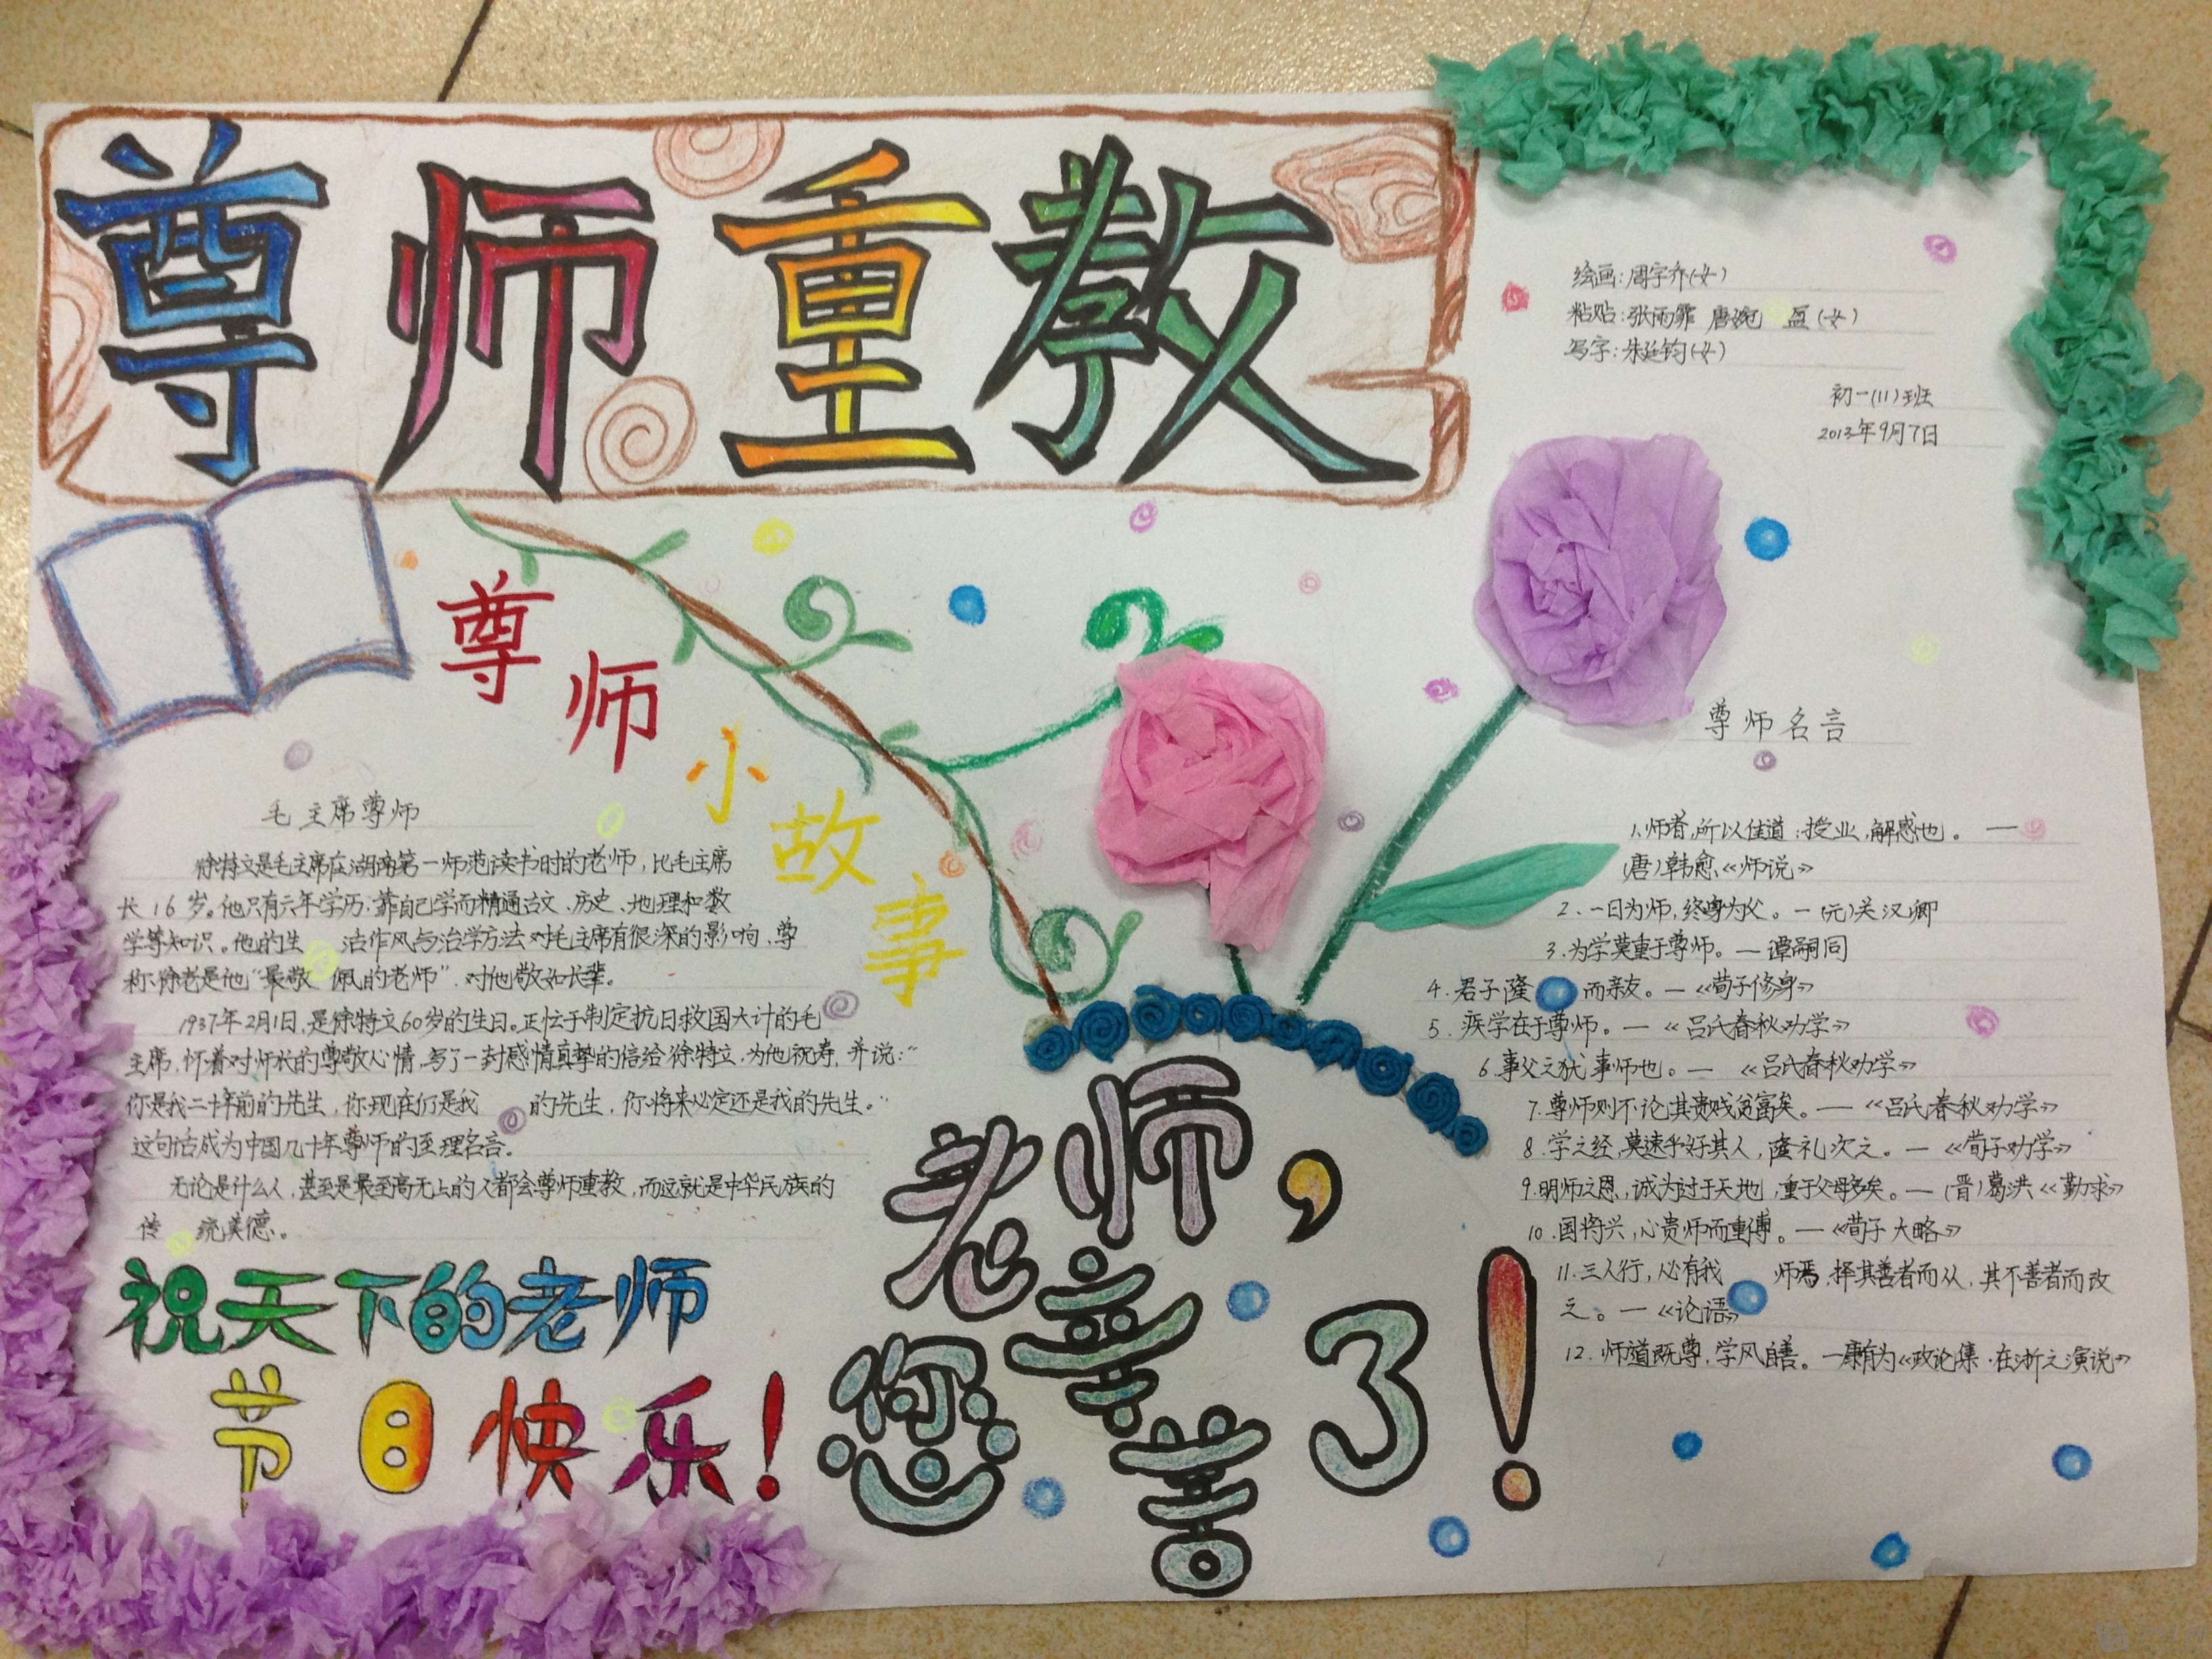 尊师重教
绘画:周宇乔(女)
粘贴:张雨霏 唐婉盈(女)
写字:朱廷钧(女)
初一(11)班
2013年9月7日
尊师小故事
毛主席尊师
徐特立是毛主席在湖南第一师范读书时的老师,比毛主席
长16岁。他只有六年学历,靠自己学而精通古文、历史、地理和数
学等知识。他的生活作风与治学方法对毛主席有很深的影响,尊
称徐老是他“最敬佩的老师”,对他敬如长辈。
1937年2月1日,是徐特立60岁的生日。正忙于制定抗日救国大计的毛
主席,怀着对师长的尊敬心情,写了一封感情真挚的信给徐特立,为他祝寿,并说:“
你是我二十年前的先生,你现在仍是我的先生,你将来必定还是我的先生。”
这句话成为中国几十年尊师的至理名言。
无论是什么人,甚至是最至高无上的人都会尊师重教,而这就是中华民族的
传统美德。
祝天下的老师
节日快乐!
老师,
您辛苦了!
尊师名言
1.师者,所以传道,授业,解惑也。——
(唐)韩愈《师说》
2.一日为师,终身为父。—(元)关汉卿
3.为学莫重于尊师。—谭嗣同
4.君子隆 而亲友。—《荀子修身》
5.疾学在于尊师。—《吕氏春秋劝学》
6.事父之犹事师也。—《吕氏春秋劝学》
7.尊师则不论其贵贱贫富矣。—《吕氏春秋劝学》
8.学之经,莫速乎好其人,隆礼次之。—《荀子劝学》
9.明师之恩,诚为过于天地,重于父母多矣。—(晋)葛洪《勤求》
10.国将兴,心贵师而重傅。—《荀子大略》
11.三人行,必有我师焉,择其善者而从,其不善者而改
之。—《论语》
12.师道既尊,学风自善。—康有为《政论集·在浙之演说》